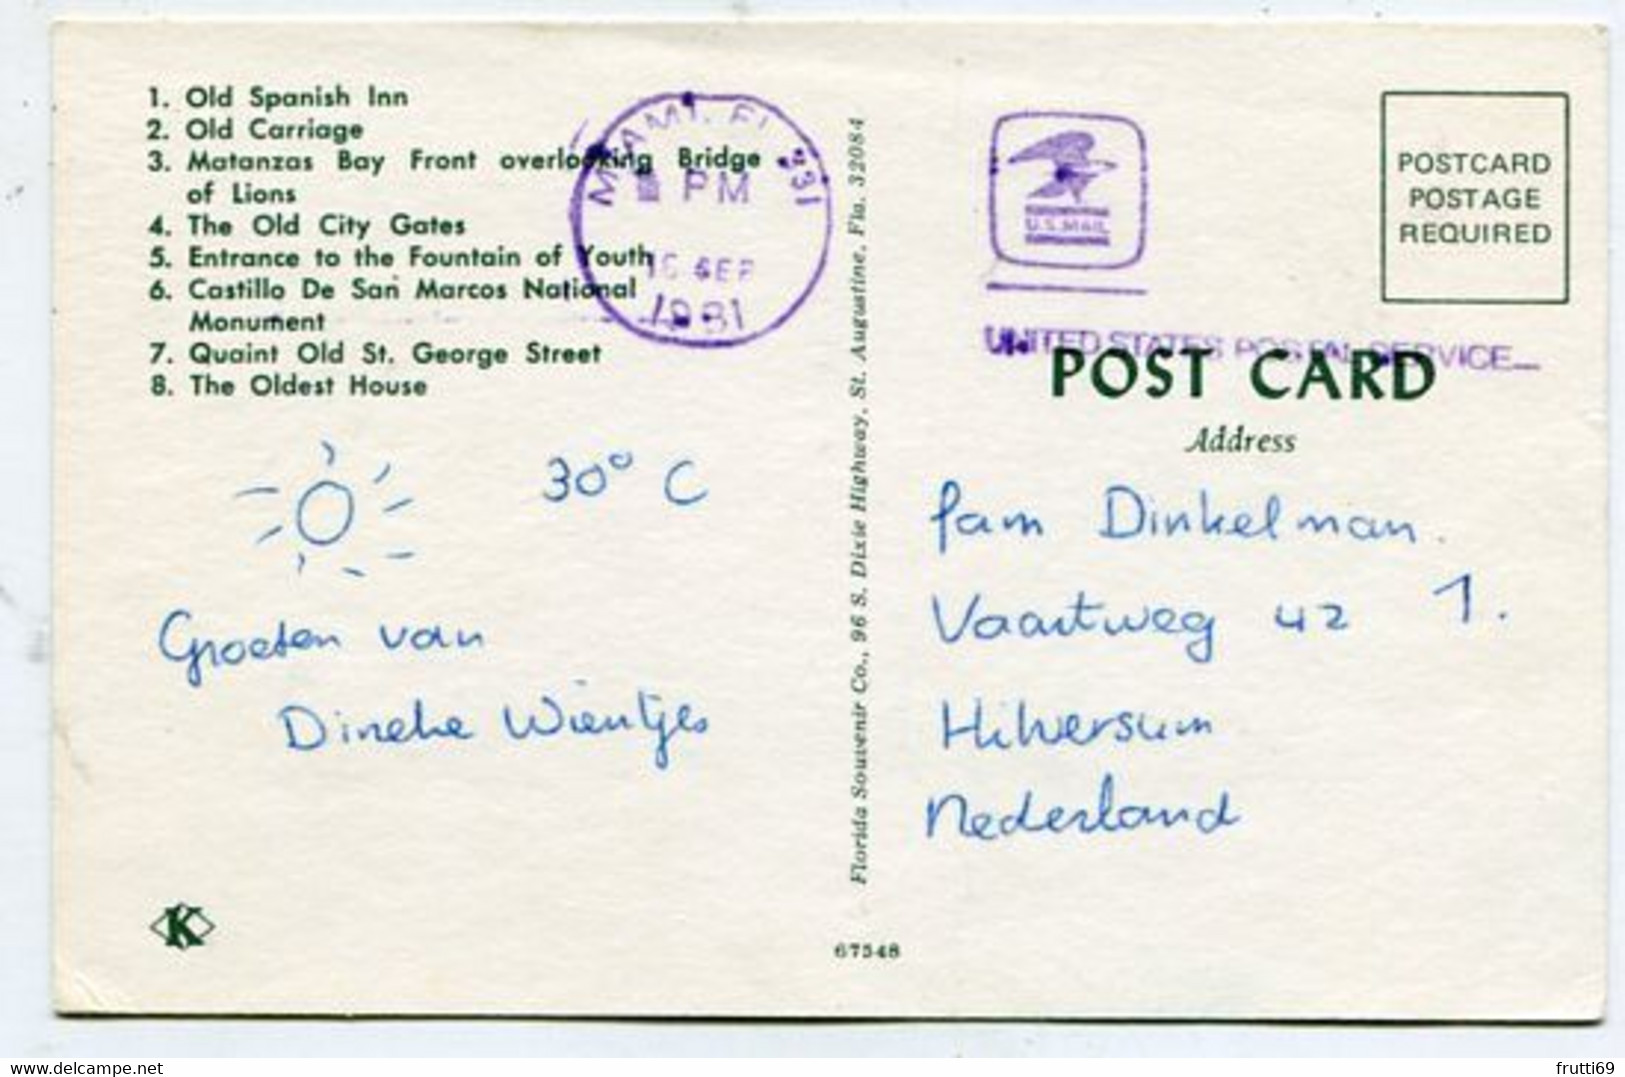 1. Old Spanish Inn
2. Old Carriage
3. Matanzas Bay Front overlooking Bridge
of Lions
4. The Old City Gates
5. Entrance to the Fountain of Youth
6. Castillo De San Marcos National
Monument
7. Quaint Old St. George Street
8. The Oldest House
MIAMI, FL 331
PM
16 SEP
1981
30° C
Groeten van
Dineke Wientjes
K
Florida Souvenir Co., 96 S. Dixie Highway, St. Augustine, Fla. 32084
67548
U.S. MAIL
UNITED STATES POSTAL SERVICE
POSTCARD
POSTAGE
REQUIRED
POST CARD
Address
Pam Dinkelman.
Vaartweg 42 1.
Hilversum
Nederland
www.delcampe.net
frutti69